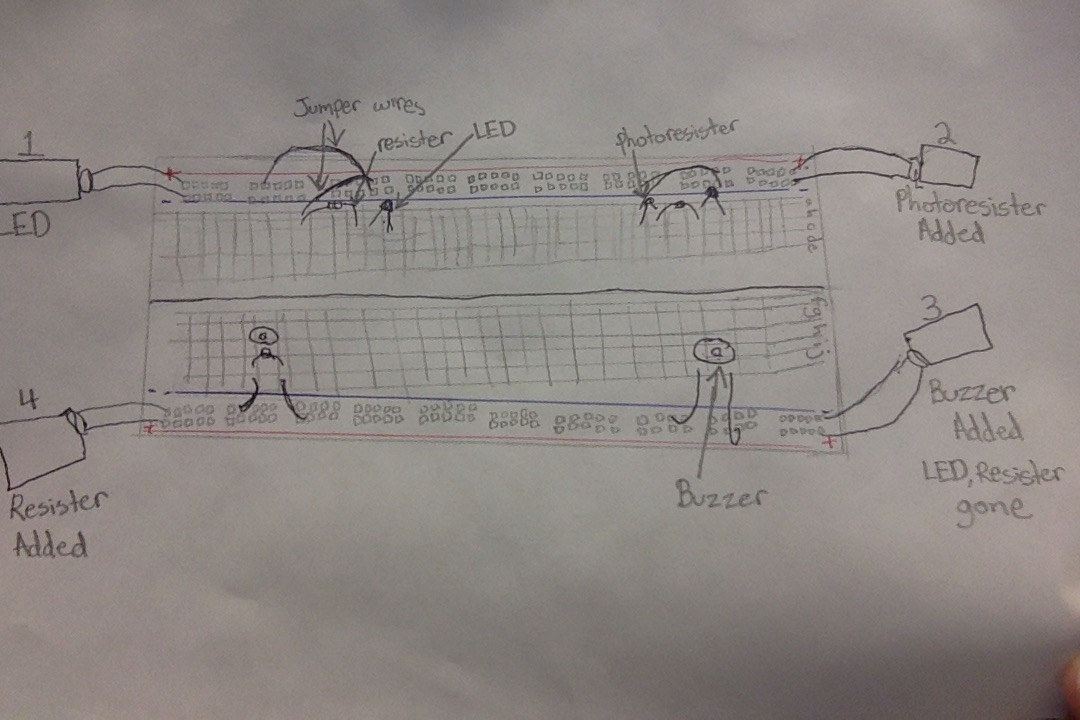 Jumper wires
resister
LED
photoresister
1
LED
2
Photoresister
Added
+
+
-
-
a b c d e
f g h i j
3
Buzzer
Added
LED, Resister
gone
-
+
+
4
Resister
Added
Buzzer